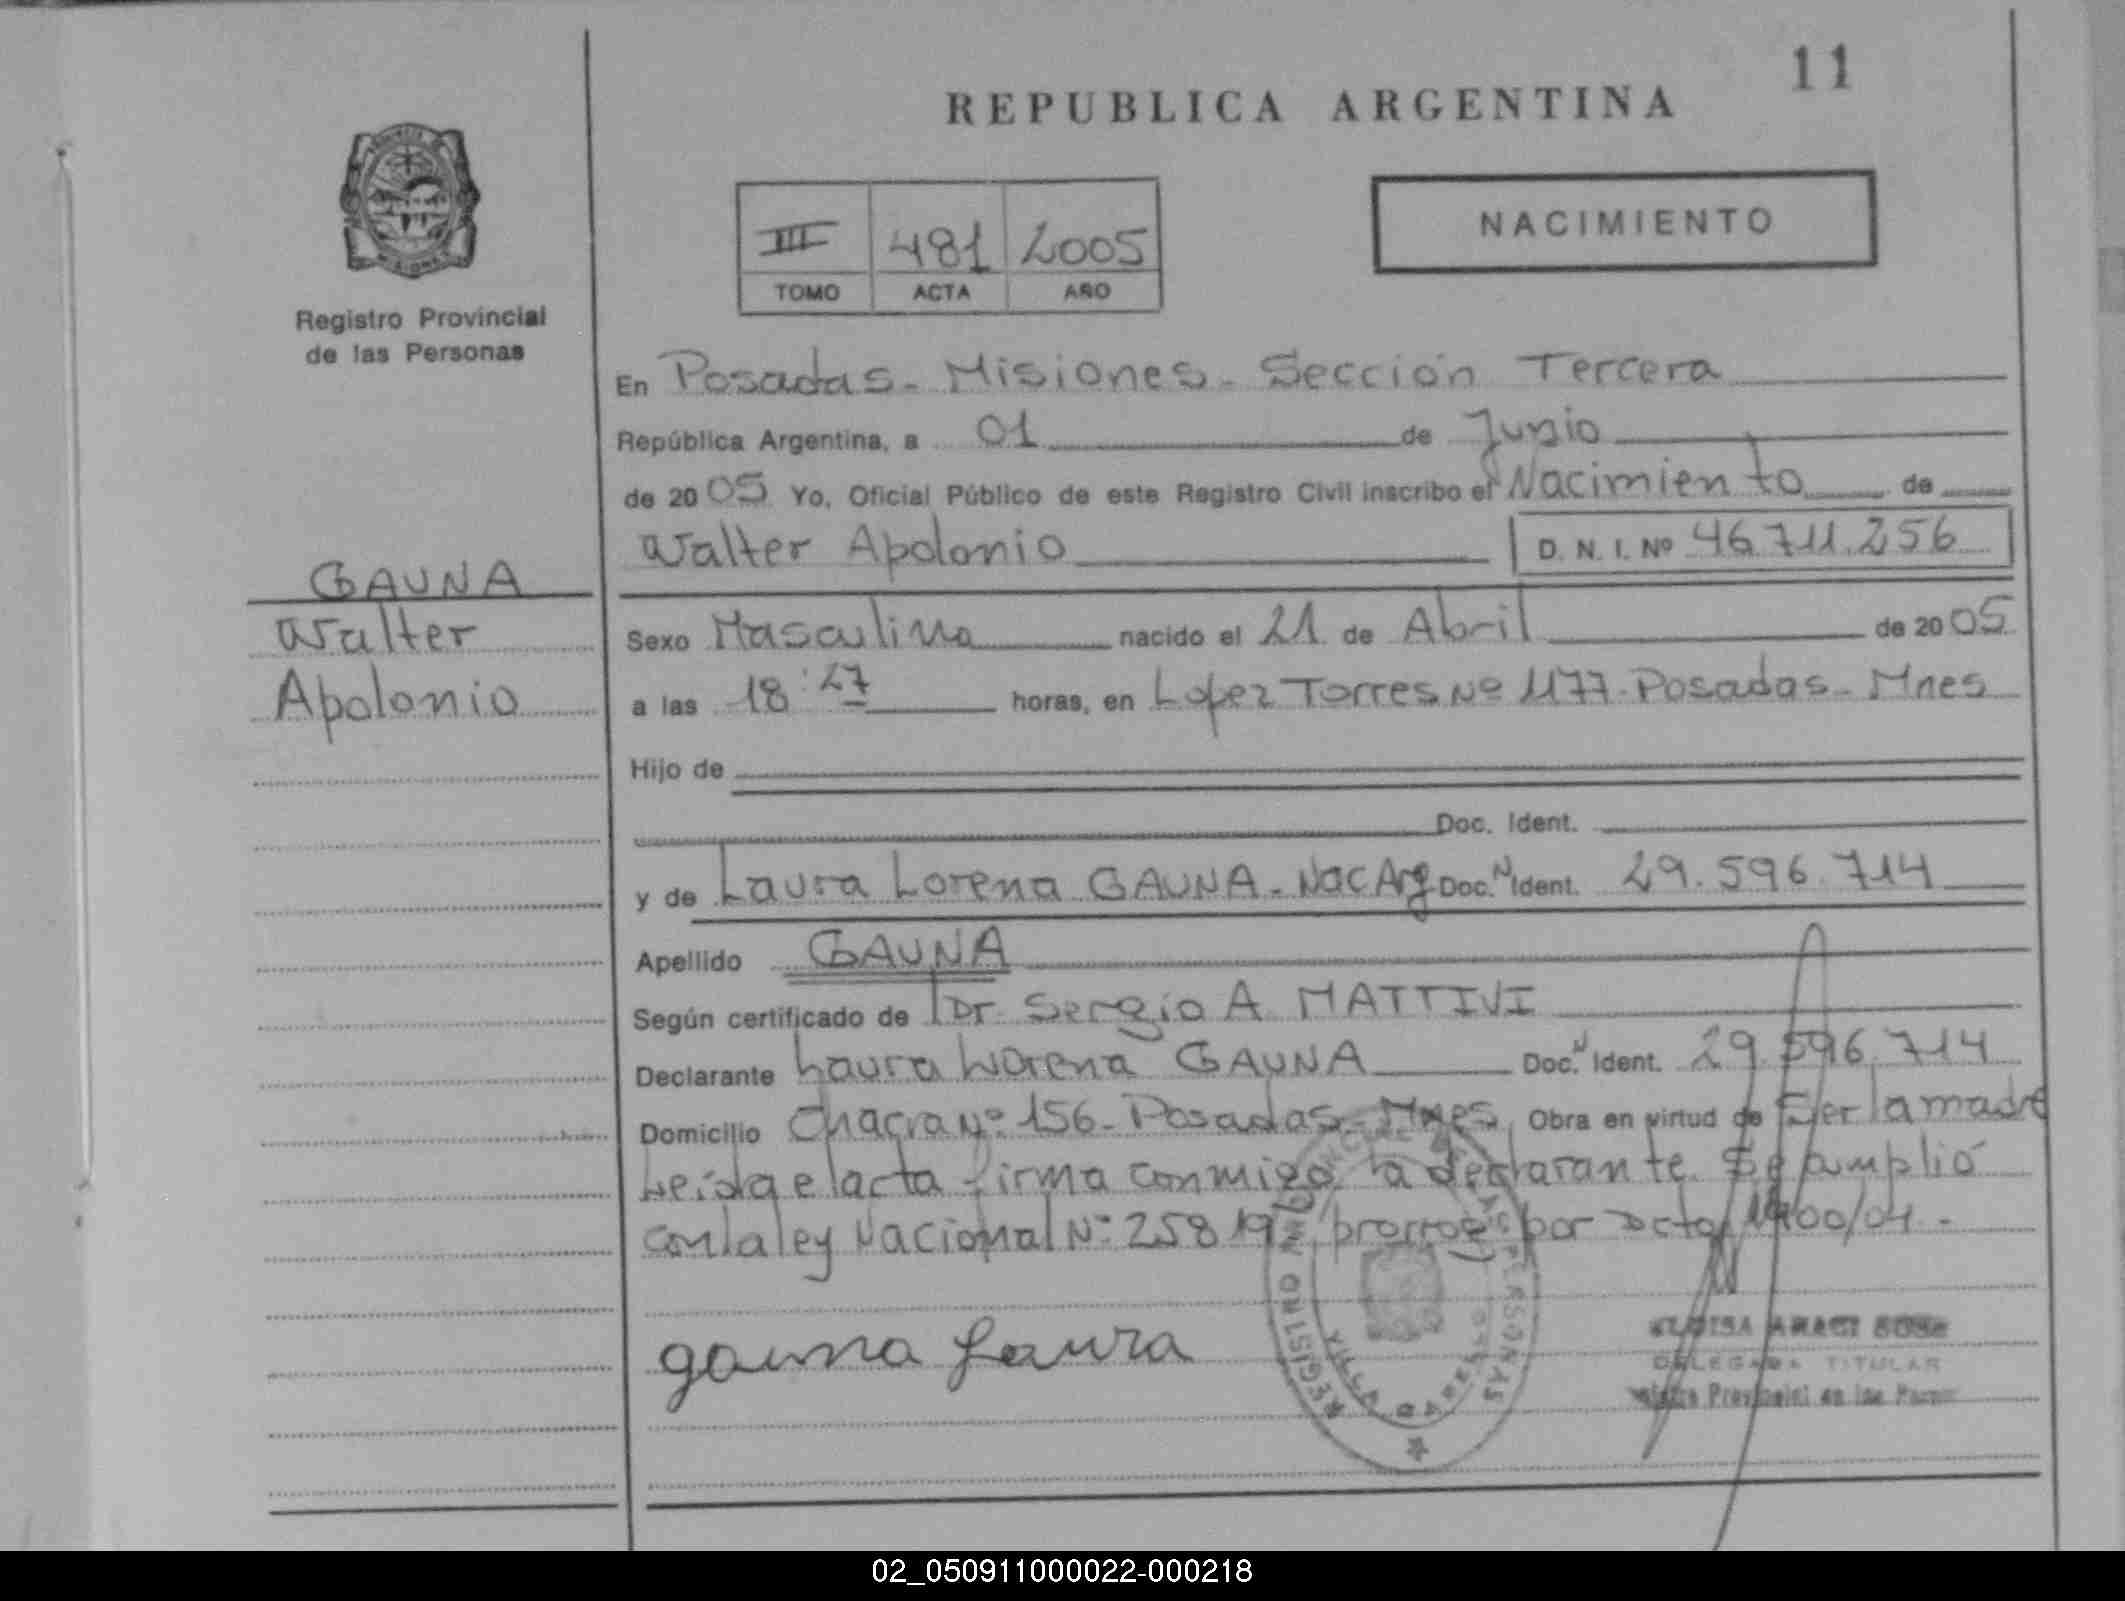 11
REPUBLICA ARGENTINA
III 481 2005
TOMO ACTA AÑO
NACIMIENTO
Registro Provincial
de las Personas
GAUNA
Walter
Apolonio
En Posadas - Misiones - Sección Tercera
República Argentina, a 01 de Junio
de 2005 Yo, Oficial Público de este Registro Civil inscribo el Nacimiento de
Walter Apolonio D. N. I. Nº 46.711.256
Sexo Masculino nacido el 21 de Abril de 2005
a las 18:27 horas, en Lopez Torres Nº 1177 - Posadas - Mnes
Hijo de
Doc. Ident.
y de Laura Lorena GAUNA - Nac Arg Doc. N Ident. 29.596.714
Apellido GAUNA
Según certificado de Dr Sergio A MATTIVI
Declarante Laura Lorena GAUNA Doc. N Ident. 29.596.714
Domicilio Chacra Nº 156 - Posadas - Mnes Obra en virtud de Ser la madre
Leída el acta firma conmigo la declarante. Se amplió
con la ley Nacional Nº 25819 prorrog por Dcto 1900/04 -
gauna Laura
REGISTRO PERSONAS
VILLA
DELEGADA TITULAR
02_050911000022-000218